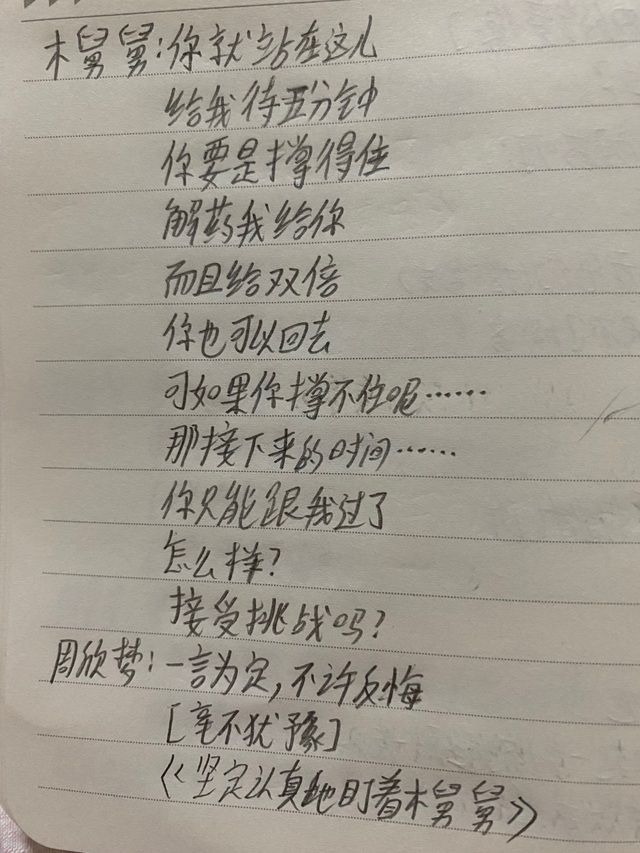 木舅舅:你就站在这儿
给我待五分钟
你要是撑得住
解药我给你
而且给双倍
你也可以回去
可如果你撑不住呢……
那接下来的时间……
你只能跟我过了
怎么样?
接受挑战吗?
周欣梦:一言为定,不许反悔
[毫不犹豫]
《坚定认真地盯着木舅舅》